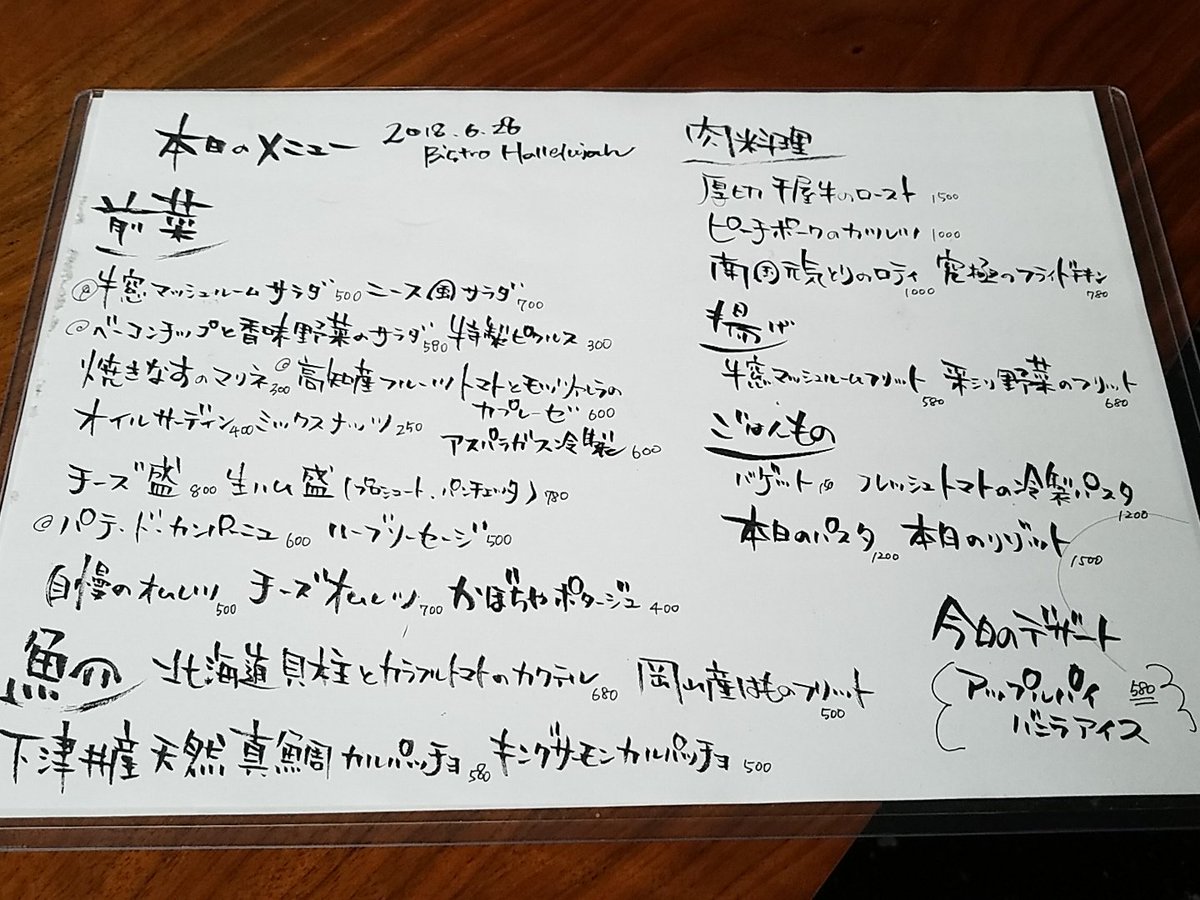 本日のメニュー 2018.6.26
Bistro Hallelujah
前菜
@牛窓マッシュルームサラダ500 ニース風サラダ700
@ベーコンチップと香味野菜のサラダ580 特製ピクルス300
焼きなすのマリネ300 @高知産フルーツトマトとモッツァレラの
カプレーゼ600
オイルサーディン400 ミックスナッツ250
アスパラガス冷製600
チーズ盛800 生ハム盛(プロシュート、パンチェッタ)780
@パテ・ド・カンパーニュ600 ハーブソーセージ500
自慢のオムレツ500 チーズオムレツ700 かぼちゃポタージュ400
魚介
北海道貝柱とカラフルトマトのカクテル680 岡山産はものフリット500
下津井産天然真鯛カルパッチョ580 キングサーモンカルパッチョ500
肉料理
厚切千屋牛のロースト1500
ピーチポークのカツレツ1000
南国元気どりのロティ1000 究極のフライドチキン780
揚げ
牛窓マッシュルームフリット580 彩り野菜のフリット680
ごはんもの
バゲット フレッシュトマトの冷製パスタ1200
本日のパスタ1200 本日のリゾット1500
今日のデザート
アップルパイ580
バニラアイス